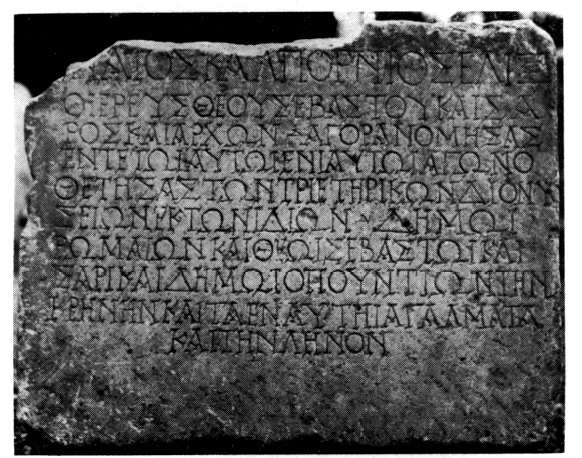 ΓΑΙΟΣ ΚΑΛΠΟΡΝΙΟΣ
Ο ΙΕΡΕΥΣ ΘΕΟΥ ΣΕΒΑΣΤΟΥ ΚΑΙΣΑ
ΡΟΣ ΚΑΙ ΑΡΧΩΝ ΑΓΟΡΑΝΟΜΗΣΑΣ
ΕΝ ΤΕ ΤΩΙ ΑΥΤΩΙ ΕΝΙΑΥΤΩΙ ΑΓΩΝΟ
ΘΕΤΗΣΑΣ ΤΩΝ ΤΡΙΕΤΗΡΙΚΩΝ ΔΙΟΝΥ
ΣΕΙΩΝ ΕΚ ΤΩΝ ΙΔΙΩΝ ΔΗΜΩΙ
ΡΩΜΑΙΩΝ ΚΑΙ ΘΕΩΙ ΣΕΒΑΣΤΩΙ ΚΑΙ
ΣΑΡΙ ΚΑΙ ΔΗΜΩΙ ΟΗΟΥΝΤΙΩΝ ΤΗΝ
ΚΡΗΝΗΝ ΚΑΙ ΤΑ ΕΝ ΑΥΤΗΙ ΑΓΑΛΜΑΤΑ
ΚΑΙ ΤΗΝ ΛΗΝΟΝ